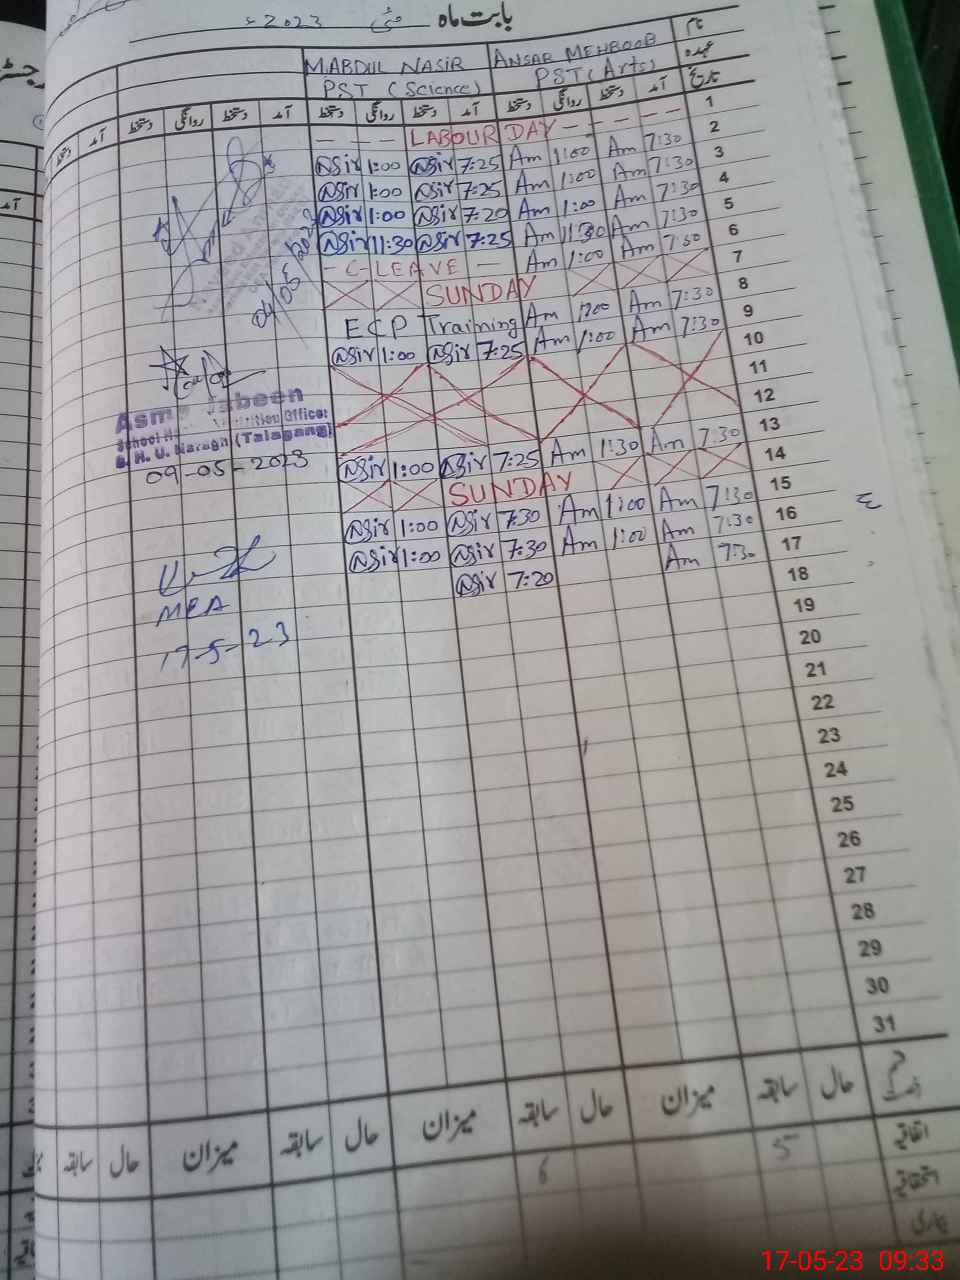 بابت ماہ مئی 2023ء
نام ANSAR MEHBOOB M ABDUL NASIR
عہدہ PST (Arts) PST (Science)
تاریخ آمد دستخط روانگی دستخط آمد دستخط روانگی دستخط آمد دستخط روانگی دستخط آمد دستخط
1 — — — LABOUR DAY — — — —
2 7:30 Am 1:00 Am 7:25 Nasir 1:00 Nasir
3 7:30 Am 1:00 Am 7:25 Nasir 1:00 Nasir
4 7:30 Am 1:00 Am 7:20 Nasir 1:00 Nasir
5 7:30 Am 11:30 Am 7:25 Nasir 11:30 Nasir
6 7:30 Am 1:00 Am — C-LEAVE —
7 SUNDAY
8 7:30 Am 1:00 Am Training
9 7:30 Am 1:00 Am 7:25 Nasir 1:00 Nasir
10
11
12
13 7:30 Am 1:30 Am 7:25 Nasir 1:00 Nasir
14 SUNDAY
15 7:30 Am 1:00 Am 7:30 Nasir 1:00 Nasir
16 7:30 Am 1:00 Am 7:30 Nasir 1:00 Nasir
17 7:30 Am 7:20 Nasir
18
19
20
21
22
23
24
25
26
27
28
29
30
31
Asma Jabeen
School Nutrition Officer
B. H. U. Naragh (Talagang)
09-05-2023
MEA
17-5-23
حال سابقہ میزان حال سابقہ میزان حال سابقہ میزان حال سابقہ
اتفاقیہ 5 6
استحقاقیہ
بیماری
17-05-23 09:33